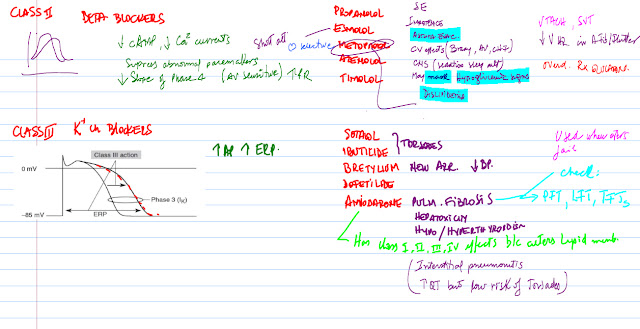 CLASS II BETA BLOCKERS
↓ cAMP, ↓ Ca2+ currents
Suppress abnormal pacemakers
↓ Slope of Phase 4 (AV sensitive) ↑ PR
Short act
selective
PROPANOLOL
ESMOLOL
METOPROLOL
ATENOLOL
TIMOLOL
SE
IMPOTENCE
CV effects (Brady, AV, CHF)
CNS (sedation sleep alt)
May mask hypoglycemic signs
DISLIPIDEMIA
VTACH SVT
↓ V HR in Afib/flutter
overd. Rx GLUCAGON
CLASS III K+ Ch BLOCKERS
↑ AP ↑ ERP
Class III action
0 mV
Phase 3 (IK)
ERP
-85 mV
SOTALOL
IBUTILIDE
TORSADES
BRETYLIUM NEW ARR. ↓ BP.
DOFETILIDE
AMIODARONE PULM. FIBROSIS
HEPATOTOXICITY
HYPO/HYPERTHYROIDISM
Used when others
fail
check:
PFT, LFT, TFTs
Has class I, II, III, IV effects b/c alters lipid memb.
(Interstitial pneumonitis
↑ QT but low risk of Torsades)